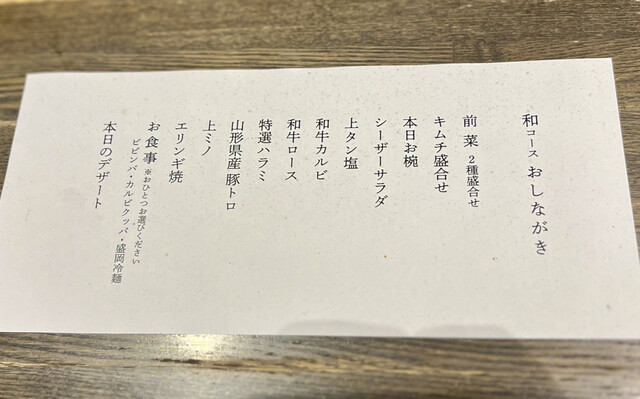 和コース おしながき
前菜 2種盛合せ
キムチ盛合せ
本日お椀
シーザーサラダ
上タン塩
和牛カルビ
和牛ロース
特選ハラミ
山形県産 豚トロ
上ミノ
エリンギ焼
お食事 ※おひとつお選びください
ビビンバ・カルビクッパ・盛岡冷麺
本日のデザート